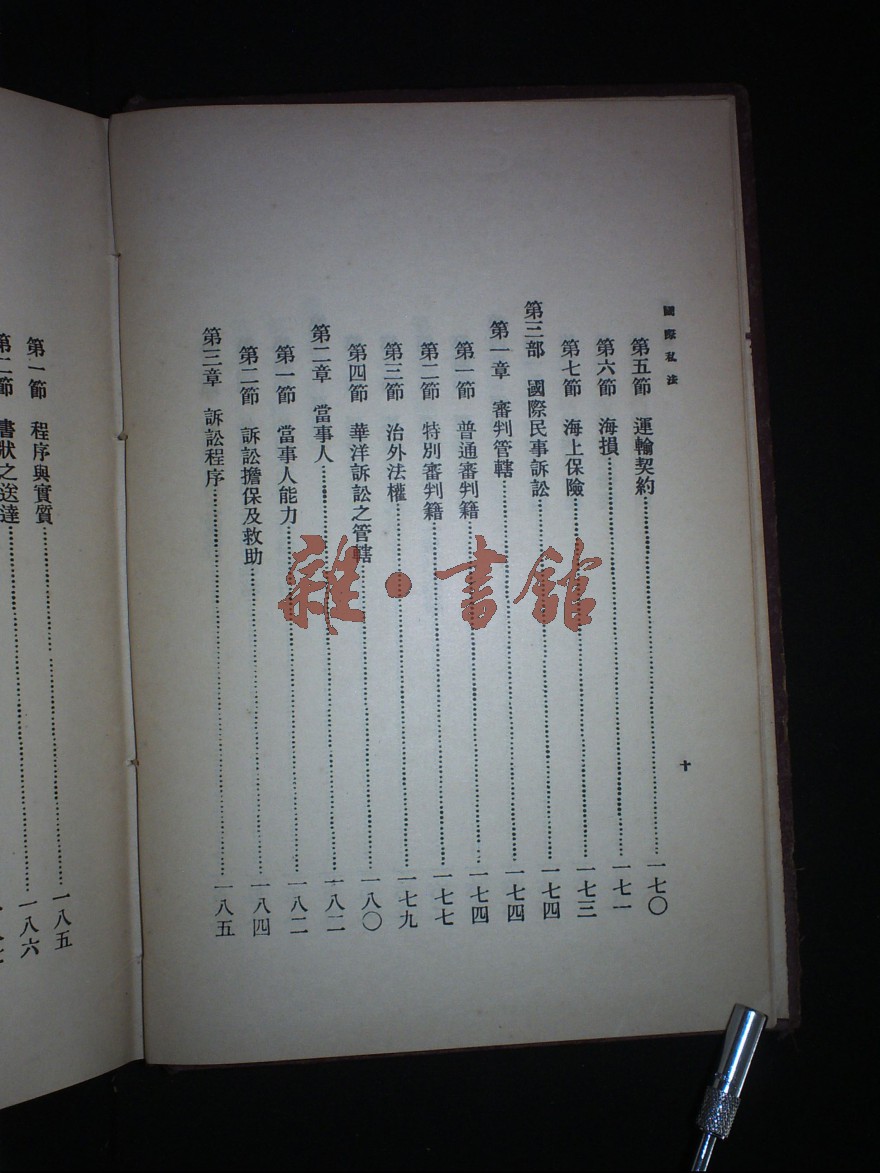 國際私法
第五節 運輸契約…………一七〇
第六節 海損…………一七一
第七節 海上保險…………一七三
第三部 國際民事訴訟…………一七四
第一章 審判管轄…………一七四
第一節 普通審判籍…………一七四
第二節 特別審判籍…………一七七
第三節 治外法權…………一七九
第四節 華洋訴訟之管轄…………一八〇
第二章 當事人…………一八二
第一節 當事人能力…………一八二
第二節 訴訟擔保及救助…………一八四
第三章 訴訟程序…………一八五
十
第一節 程序與實質…………一八五
第二節 書狀之送達…………一八六
雜·書館